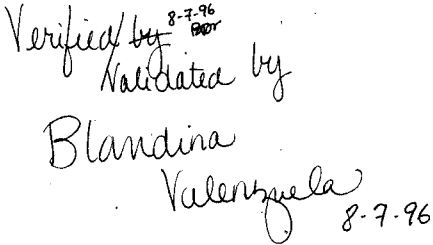 Verified/by 8-7-96
Validated by
Blandina
Valenzuela
8-7-96